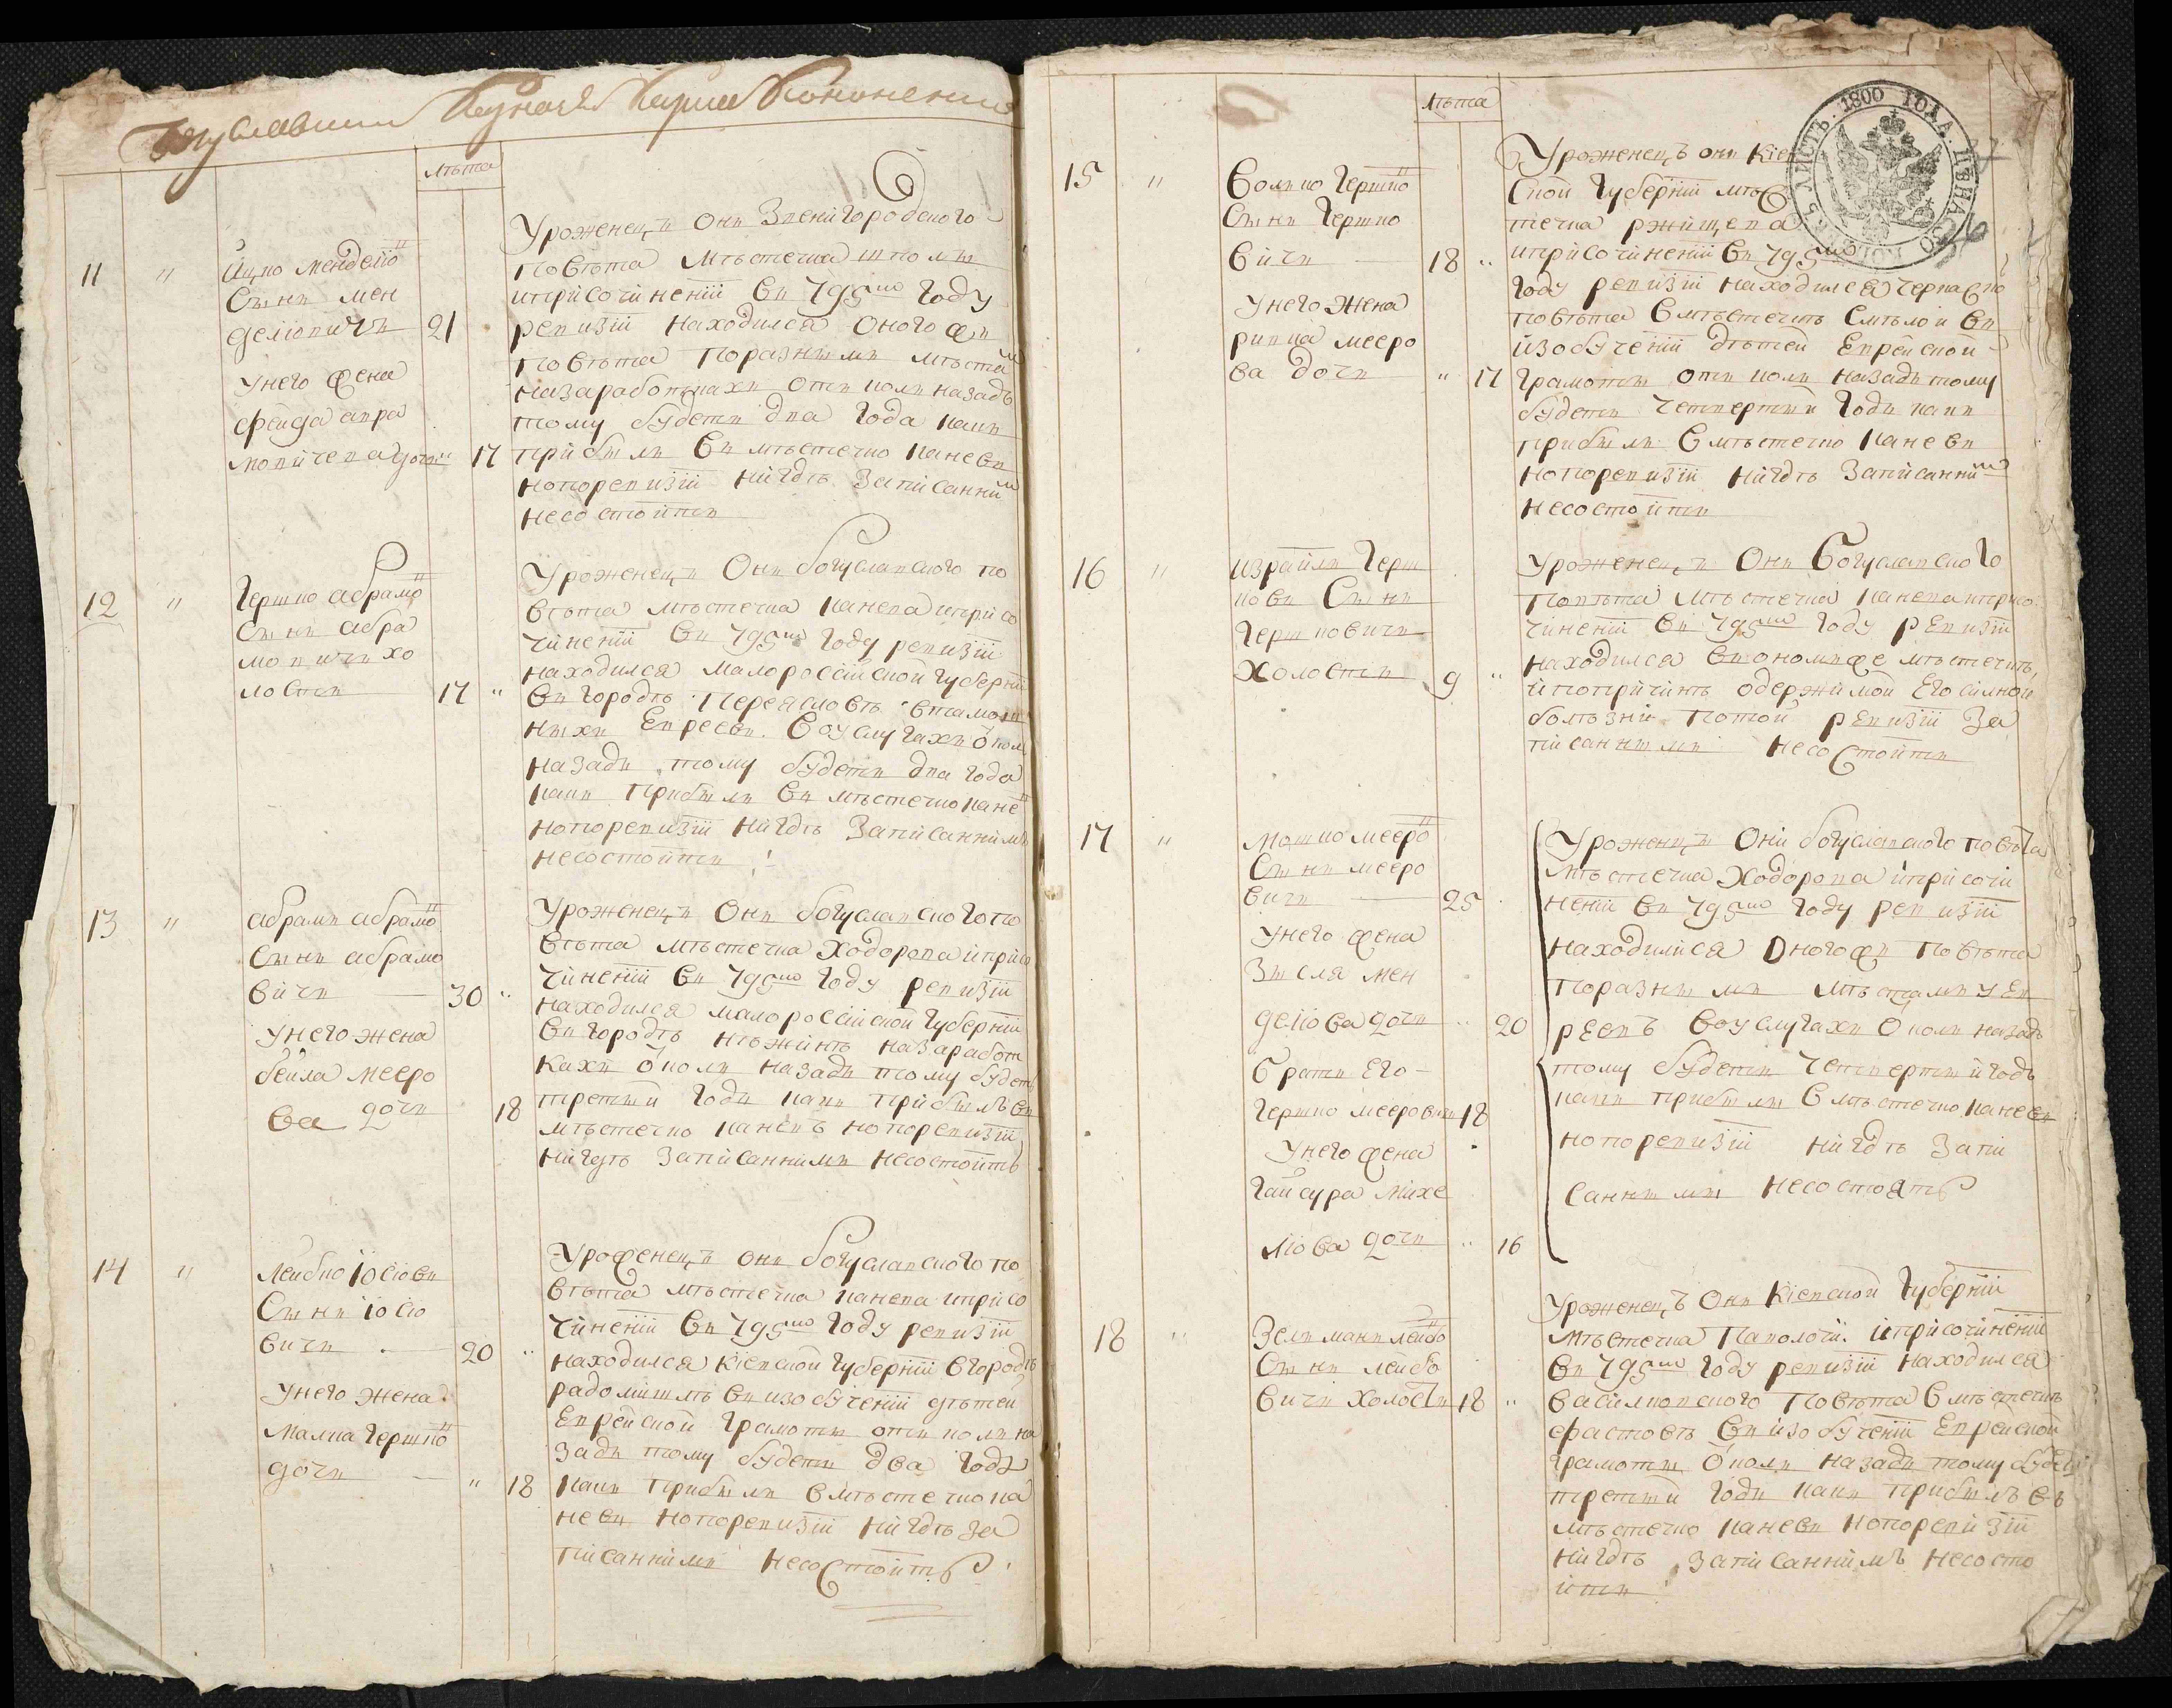 лѣта
11 " Ицко Менделіо
Сынъ Мен
деліовичъ 21
унего жена
Фейда Авра
мовичева дочь " 17
Уроженецъ онъ Звенигородского
повѣта мѣстечка Шполы
и при сочиненіи въ 795мъ году
ревизіи находился оного жъ
повѣта по разнымъ мѣста
на заработкахъ откол назадъ
тому будетъ два года какъ
прибылъ въ мѣстечко Каневъ
но по ревизіи нигдѣ записанним
несостоитъ
12 " Гершко Абрамо
Сынъ Абра
мовичъ хо
лостъ 17 "
Уроженецъ онъ Богуславского по
вѣта мѣстечка Канева и при со
чиненіи въ 795мъ году ревизіи
находился Малоросійской губерніи
въ городѣ Переясловѣ в тамош
ныхъ Евреевъ воуслугахъ окол
назадъ тому будетъ два года
какъ прибылъ въ мѣстечко Кане
но по ревизіи нигдѣ записаннимъ
несостоитъ
13 " Абрамъ Абрамо
Сынъ Абрамо
вичъ 30 "
унего жена
Бейла Мееро
ва дочъ 18
Уроженецъ онъ Богуславского по
вѣта мѣстечка Ходорова и при со
чиненіи въ 795мъ году ревизіи
находился Малоросійской губерніи
въ городѣ Нѣжинѣ на заработ
кахъ околъ назадъ тому будетъ
третьй годъ какъ прибылъ въ
мѣстечко Каневъ но по ревизіи
нигдѣ записаннимъ несостоитъ
14 " Лейбко Іосіовъ
Сынъ Іосіо
вичъ 20 "
унего жена
Малка Гершко
дочъ " 18
Уроженецъ онъ Богуславского по
вѣта мѣстечка Канева и при со
чиненіи въ 795мъ году ревизіи
находился Кіевской губерніи в городѣ
Радомишлѣ въ изобученіи дѣтей
Еврейской грамоты откол на
задъ тому будетъ два года
какъ прибылъ в мѣстечко Ка
невъ но по ревизіи нигдѣ за
писаннимъ несостоитъ
лѣта
15 " Волко Гершко
Сынъ Гершко
вичъ 18 "
унего жена
Ривка Мееро
ва дочъ " 17
Уроженецъ онъ Кіе
ской губерніи мѣс
течка Ржищева
и при сочиненіи въ 795мъ
году ревизіи находился Черкаско
повѣта в мѣстечкѣ Смѣлой въ
изобученіи дѣтей Еврейской
грамоты откол назадъ тому
будетъ четвертый годъ какъ
прибылъ в мѣстечко Каневъ
но по ревизіи нигдѣ записанним
несостоитъ
16 " Израйлъ Герш
ковъ Сынъ
Гершковичъ
холостъ 9 "
Уроженецъ онъ Богуславского
повѣта мѣстечка Канева и при со
чиненіи въ 795мъ году ревизіи
находился въ ономъ же мѣстечкѣ,
и по причинѣ одержимой его силной
болѣзни по той ревизіи за
писаннымъ несостоитъ
17 " Мошко Мееро
Сынъ Мееро
вичъ 25
унего жена
Зысля Мен
деліова дочъ " 20
Братъ его
Гершко Мееровичъ 18
унего жена
Гайсура Михе
ліова дочъ " 16
Уроженцъ они Богуславского повѣта
мѣстечка Ходорова и при сочи
неніи въ 795мъ году ревизіи
находилися оного жъ повѣта
по разнымъ мѣстамъ у Ев
реевъ воуслугахъ околъ назадъ
тому будетъ четвертый годъ
какъ прибылы в мѣстечко Каневъ
но по ревизіи нигдѣ запи
саннымы несостоятъ
18 " Зелманъ Лейбо
Сынъ Лейбо
вичъ холостъ 18 "
Уроженецъ онъ Кіевской губерніи
мѣстечка Паволочи и при сочиненіи
въ 795мъ году ревизіи находился
Василковского повѣта в мѣстечкѣ
Фастовѣ въ изобученіи Еврейской
грамоты околъ назадъ тому будетъ
третьй годъ какъ прибылъ въ
мѣстечко Каневъ но по ревизіи
нигдѣ записаннимъ несосто
итъ
1800 ГОДА